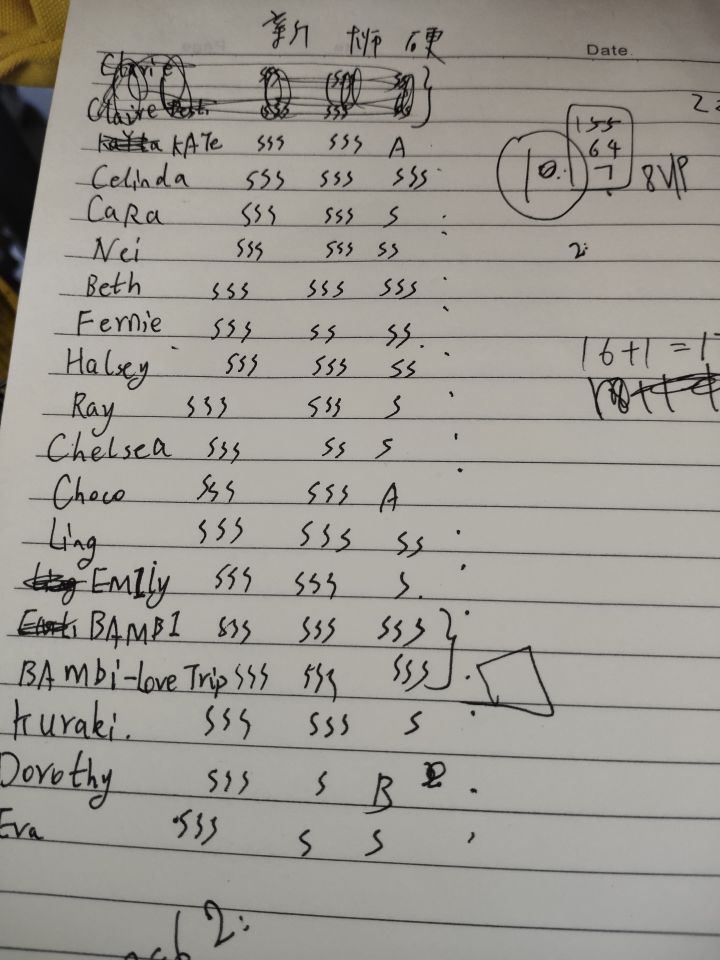 新 师 硬
Date.
Claire
KATE SSS SSS A
Celinda SSS SSS SSS
CaRa SSS SSS S
Nei SSS SSS SS
Beth SSS SSS SSS
Fernie SSS SS SS
Halsey SSS SSS SS
Ray SSS SSS S
Chelsea SSS SS S
Choco SSS SSS A
Ling SSS SSS SS
EMIly SSS SSS S.
BAMBI SSS SSS SSS
BAmbi-Love Trip SSS SSS SSS
Kuraki. SSS SSS S
Dorothy SSS S B
Eva SSS S S
155
64
7
8VP
2:
16+1=17
2: